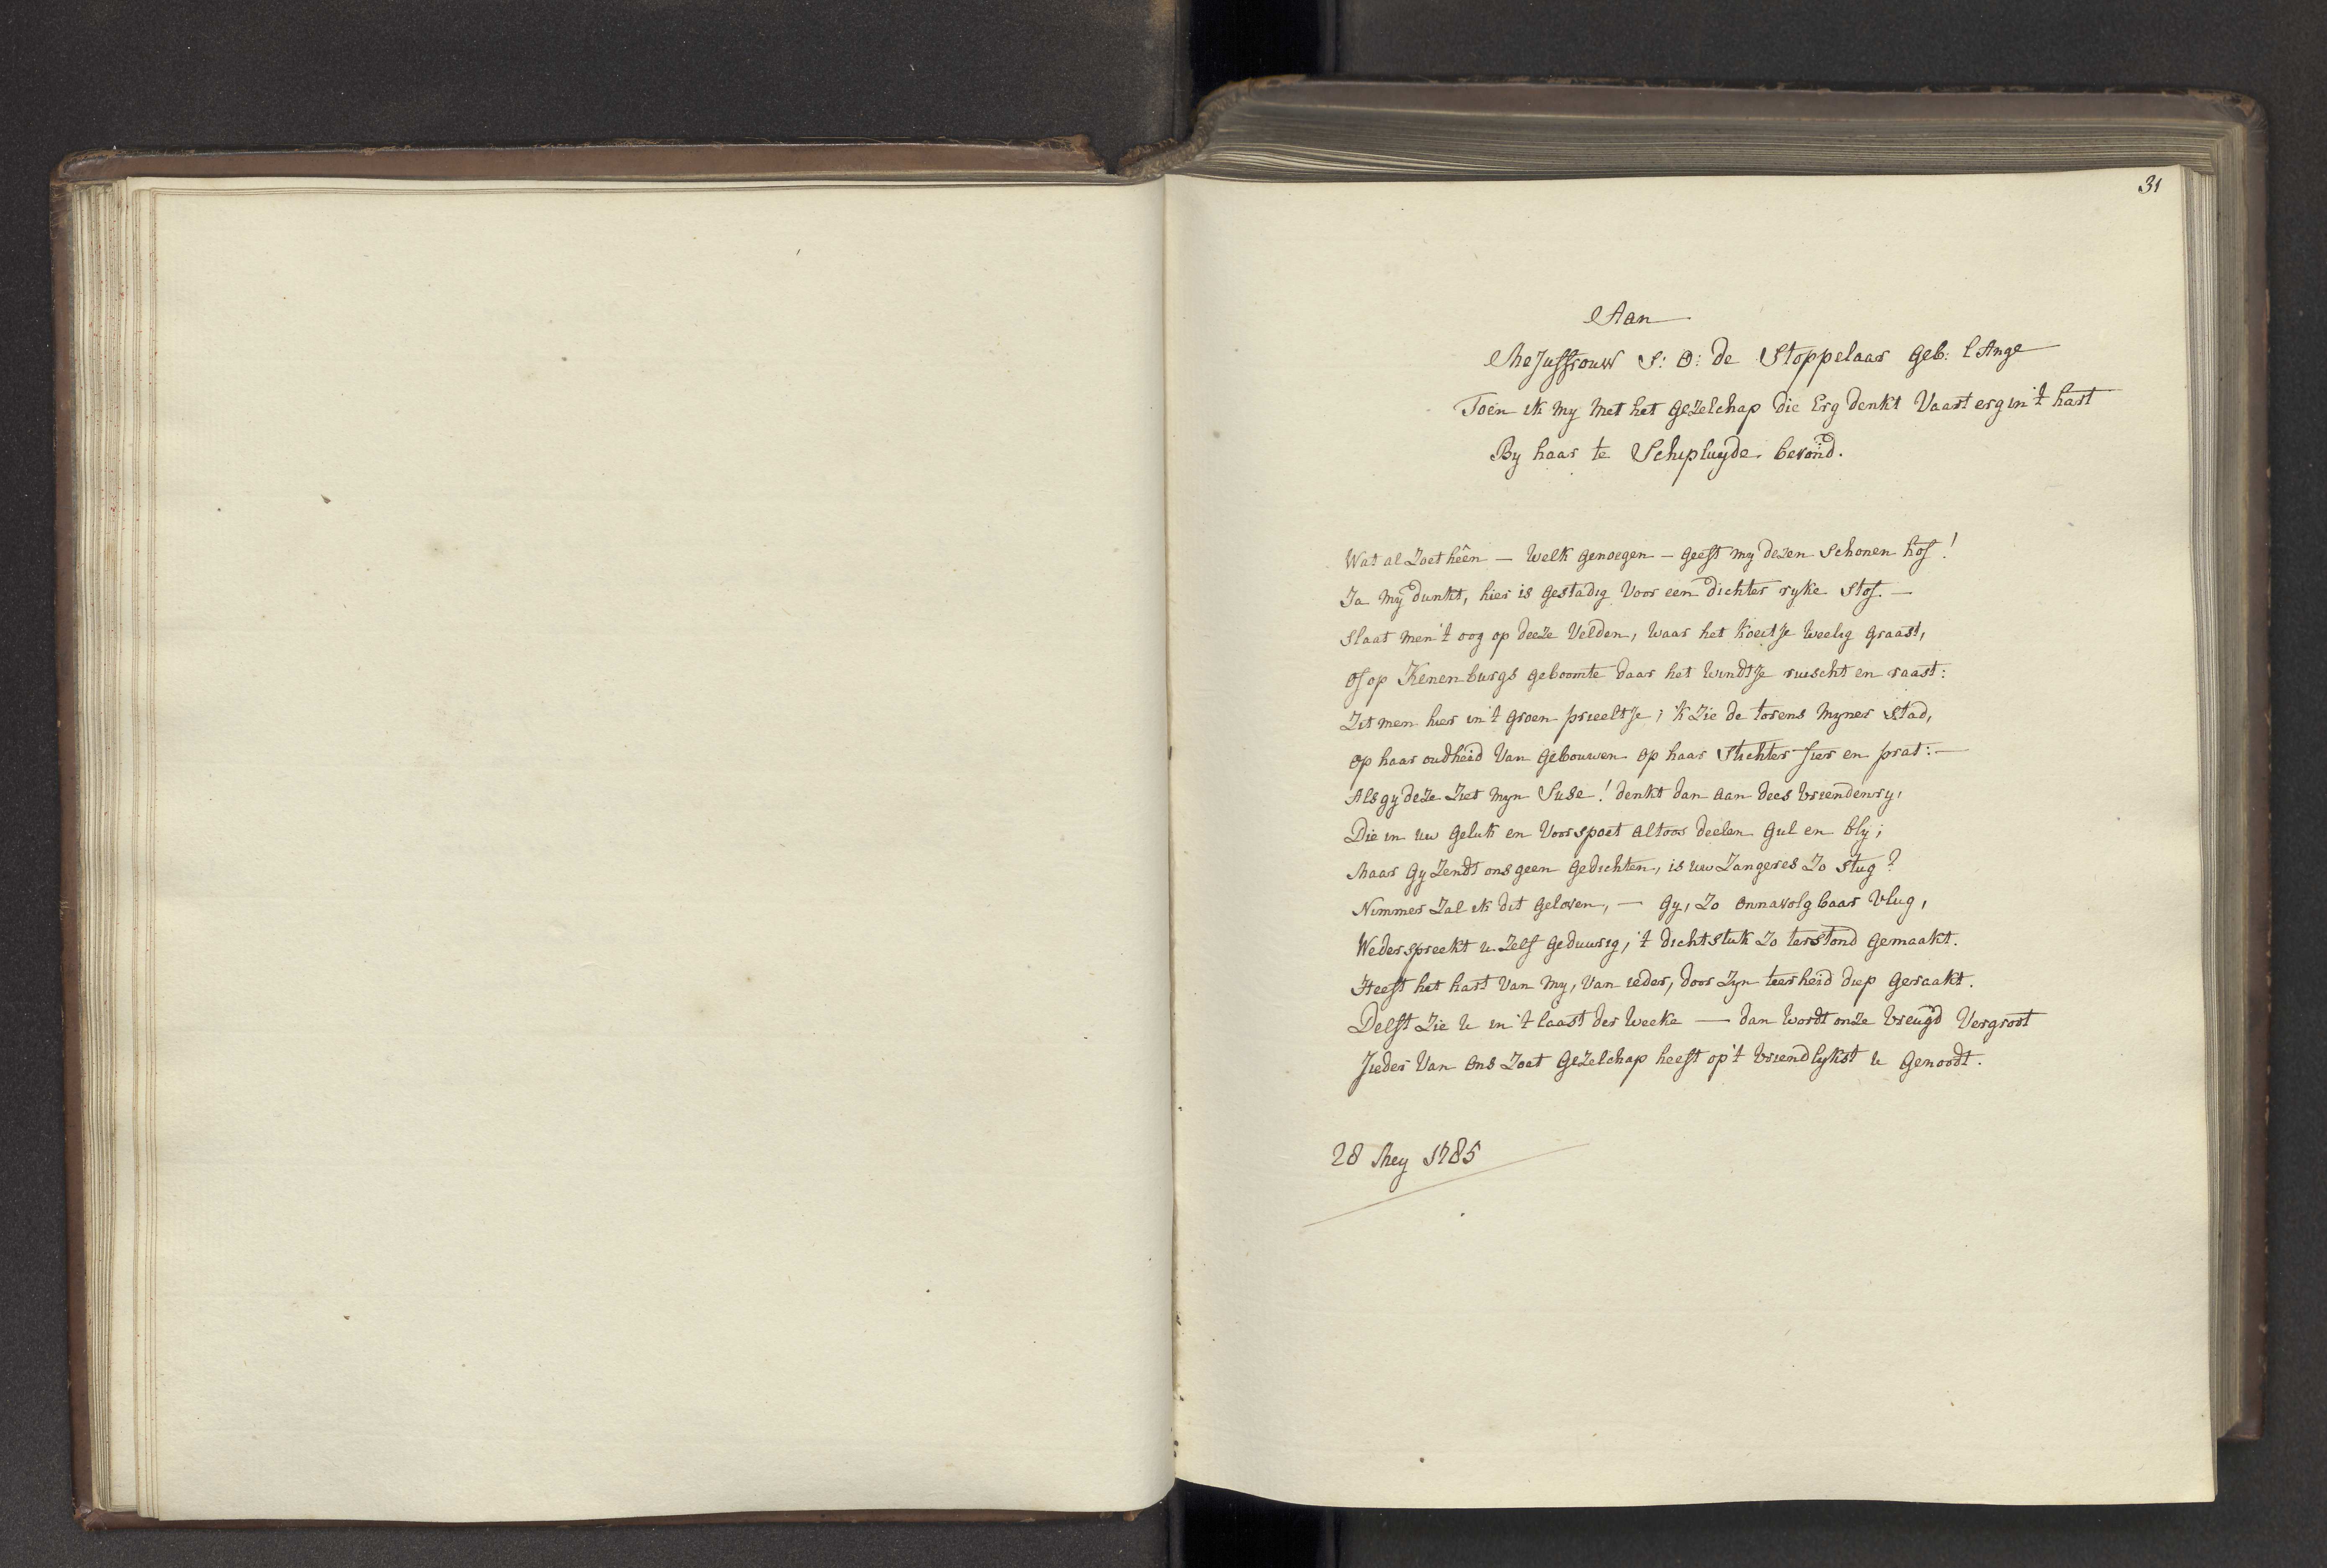 31
Aan
Mejuffrouw S: D: de Stoppelaar Geb: l'Ange
Toen ik my met het Gezelchap die Erg denkt Vaart erg in 't hart
By haar te Schipluyde bevond.
Wat al Zoetheên — Welk genoegen — geeft my dezen Schonen hof!
Ja my dunkt, hier is gestadig Voor een dichter ryke Stof. —
Slaat men 't oog op deeze Velden, waar het Koeitje weelig graast,
Of op Kenenburgs geboomte daar het windtje ruischt en raast:
Zit men hier in 't groen prieeltje; 'k Zie de torens myner Stad,
Op haar oudheid Van Gebouwen op haar Stichter fier en prat: —
Als gy deze Ziet myn Suse! denkt dan aan dees Vriendenry,
Die in uw geluk en Voorspoet altoos deelen gul en bly;
Maar Gy Zendt ons geen gedichten, is uw Zangeres Zo Stug?
Nimmer Zal ik dit geloven, — Gy, Zo onnavolgbaar Vlug,
Wederspreekt u Zelf geduurig, 't dichtstuk Zo terstond gemaakt.
Heeft het hart Van my, Van ieder, door Zyn teerheid diep geraakt.
Delft Zie U in 't laast der Weeke — dan wordt onze Vreugd Vergroot
Jieder Van ons Zoet Gezelchap heeft op 't Vriendlykst U genoodt.
28 Mey 1785